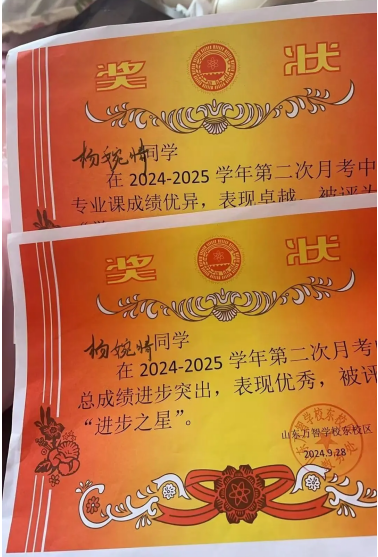 奖 状
杨婉情同学
在 2024-2025 学年第二次月考中
专业课成绩优异，表现卓越，被评为
奖 状
杨婉情同学
在 2024-2025 学年第二次月考
总成绩进步突出，表现优秀，被评
“进步之星”。
山东万智学校东校区
2024.9.28